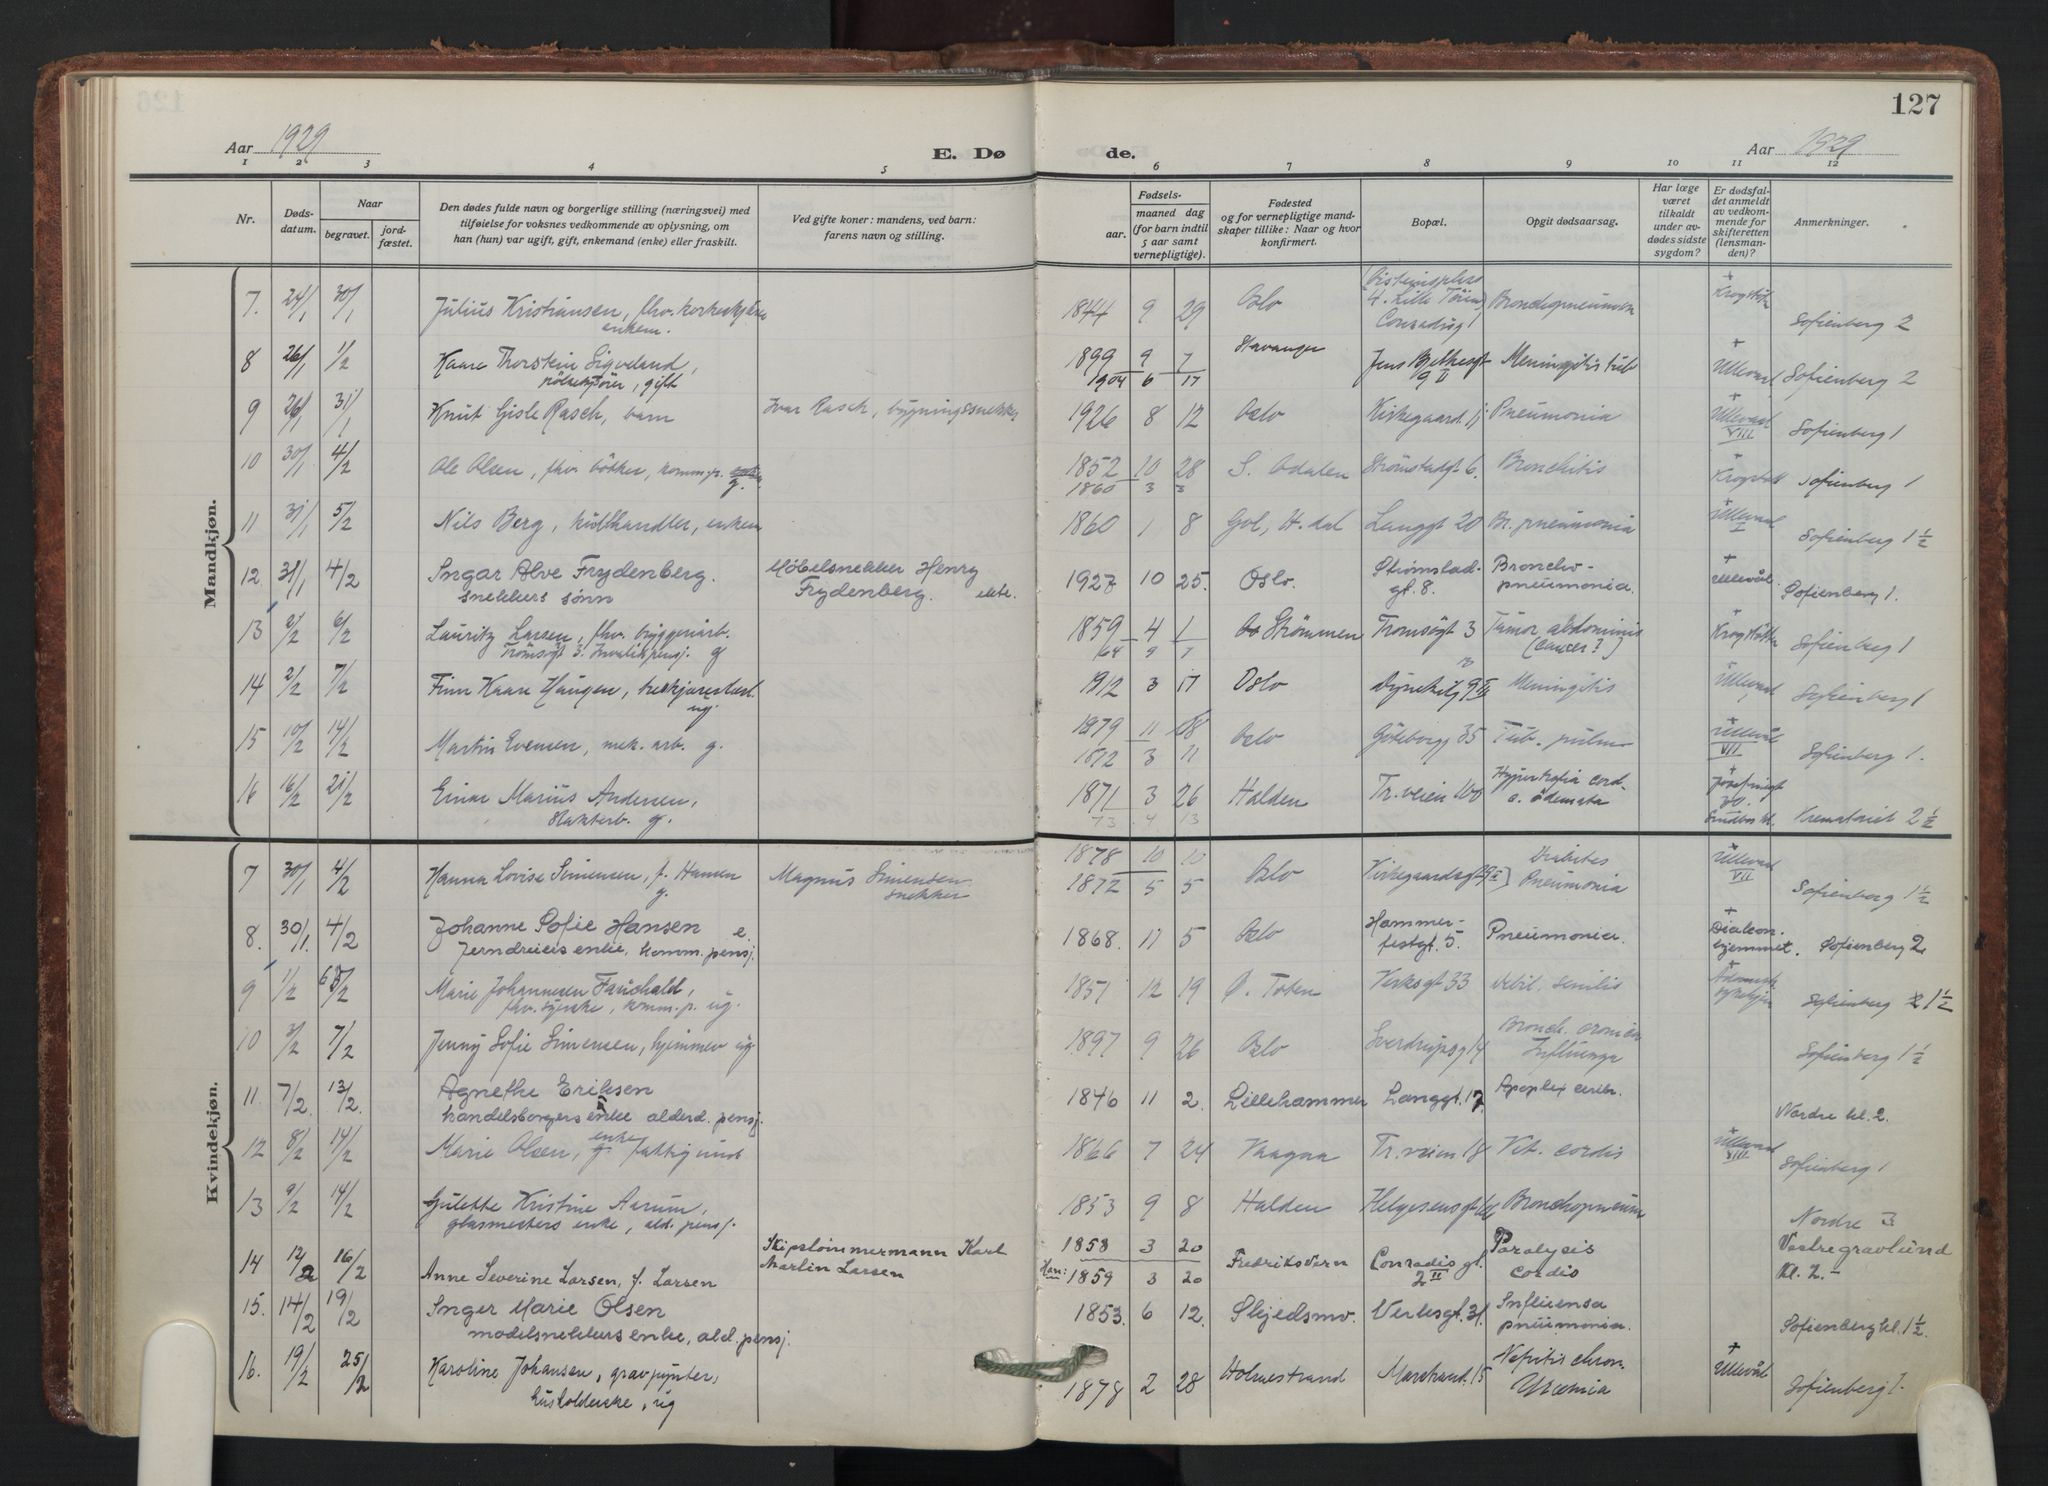 127
Aar 1929
E. Dø
de.
Aar 1929
1 2 3 4 5 6 7 8 9 10 11 12
Nr.
Døds-
datum.
Naar
begravet.
jord-
fæstet.
Den dødes fulde navn og borgerlige stilling (næringsvei) med
tilføielse for voksnes vedkommende av oplysning, om
han (hun) var ugift, gift, enkemand (enke) eller fraskilt.
Ved gifte koner: mandens, ved barn:
farens navn og stilling.
Fødsels-
aar.
maaned dag
(for barn indtil
5 aar samt
vernepligtige).
Fødested
og for vernepligtige mand-
skaper tillike: Naar og hvor
konfirmert.
Bopæl.
Opgit dødsaarsag.
Har læge
været
tilkaldt
under av-
dødes sidste
sygdom?
Er dødsfal-
det anmeldt
av vedkom-
mende for
skifteretten
(lensman-
den)?
Anmerkninger.
Mandkjøn.
7. 24/1 30/1 Julius Kristiansen, fhv. enkem. 1844 9 29 Oslo 4. Lille Tøien Conradisg 1 Bronchopneumon + Krogstøtn Sofienberg 2
8 26/1 1/2 Kaare Thorstein Sigveland, gift 1899 9 7 Stavanger Jens Bjelkesgt 9 II Meningitis tub + Ullevaal Sofienberg 2
1904 6 17
9 26/1 31/1 Knut Gisle Rasch, barn Ivar Rasch, bygningssnekker 1926 8 12 Oslo Kirkegaard. 11 Pneumonia + Ullevaal VIII Sofienberg 1
10 30/1 4/2 Ole Olsen, fhv. bøtker, komm.p. g. 1852 10 28 S. Odalen Strømstadgt 6. Bronchitis + Krogstøtt Sofienberg 1
1860 3 3
11 31/1 5/2 Nils Berg, kulhandler, enkem 1860 1 8 Gol, H.dal Langgt 20 Br. pneumonia + Ullevaal I Sofienberg 1 1/2
12. 31/1 4/2 Ingar Alve Frydenberg. snekkers sønn Møbelsnekker Henry Frydenberg. ekte. 1927 10 25. Oslo. Strømstad-gt. 8. Broncho-pneumonia. + Ullevål. Sofienberg 1.
13 2/2 6/2 Lauritz Larsen, fhv. bryggeriarb. Tromsøgt 3. Invalidepensj. g 1859 4 1 Strømmen Tromsøgt 3 Tumor abdominis (Cancer?) Krogstøtten Sofienberg 1
64 9 7
14 2/2 7/2 Finn Kaare Haugen, ug. 1912 3 17 Oslo Dynekilg 9 III Meningitis + Ullevaal Sofienberg 1
15 10/2 14/2 Martin Evensen, mek. arb. g. 1879 11 18 Oslo Göteborgg 35 Tub. pulm + Ullevål VII Sofienberg 1.
1872 3 11
16 16/2 21/2 Einar Marius Andersen, g. 1871 3 26 Halden Tr.veien 100 Hypertrofia cord. o. ødemata + Josefinegt 30. Krematoriet 2 1/2
73 4 13
Kvindekjøn.
7 30/1 4/2 Hanna Lovise Simensen, f. Hansen g. Magnus Simensen snekker 1878 10 10 Oslo Kirkegaardsg 29 II Diabetes Pneumonia + Ullevaal VII Sofienberg 1 1/2
1872 5 5
8. 30/1. 4/2 Johanne Sofie Hansen e. Jerndreiers enke, komm. pensj. 1868. 11 5 Oslo Hammer-festgt. 5. Pneumonia. + Diakon-hjemmet. Sofienberg 2
9 1/2 5/2 Marie Johannesen Fauchald, fhv. syerske, komm. p. ug. 1851 12 19 Ø. Toten Verksgt 33 Debil. senilis Sofienberg 2 1 1/2
10 3/2 7/2 Jenny Sofie Simensen, hjemmev. ug. 1897 9 26 Oslo Sverdrupsg 14 Bronch. cronica Influenza Sofienberg 1 1/2
11. 7/2. 13/2. Agnethe Eriksen handelsborgers enke alderd. pensj. 1846 11 2. Lillehammer Langgt. 17. Apoplex cerebr. Nordre kl. 2.
12 8/2 14/2 Marie Olsen, enke g. fattigund 1866 7 24 Vaagaa Tr. veien 18 Vit. cordis + Ullevaal VIII Sofienberg 1
13 9/2 14/2 Gulette Kristine Aarum, glasmesters enke, ald. pensj. 1853 9 8 Halden Helgesensgt Bronchopneum Nordre
14 12/2 16/2 Anne Severine Larsen, f. Larsen Skipstømmermann Karl Martin Larsen 1858 3 20 Fredriksvern Conradis gt. 2 II Paralysis cordis Vestre gravlund Kl. 2.-
Han: 1859 3 20
15. 14/2 19/2 Inger Marie Olsen modelsnekkers enke, ald. pensj. 1853. 6 12. Skjedsmo. Verksgt. 31. Influensa pneumonia. Sofienberg kl. 1 1/2.
16. 19/2 25/2 Karoline Johansen, gravpynter, husholderske, ug 1878 2 28 Holmestrand Marstrand. 15 Nefritis chron. Uræmia + Ullevål Sofienberg 1.